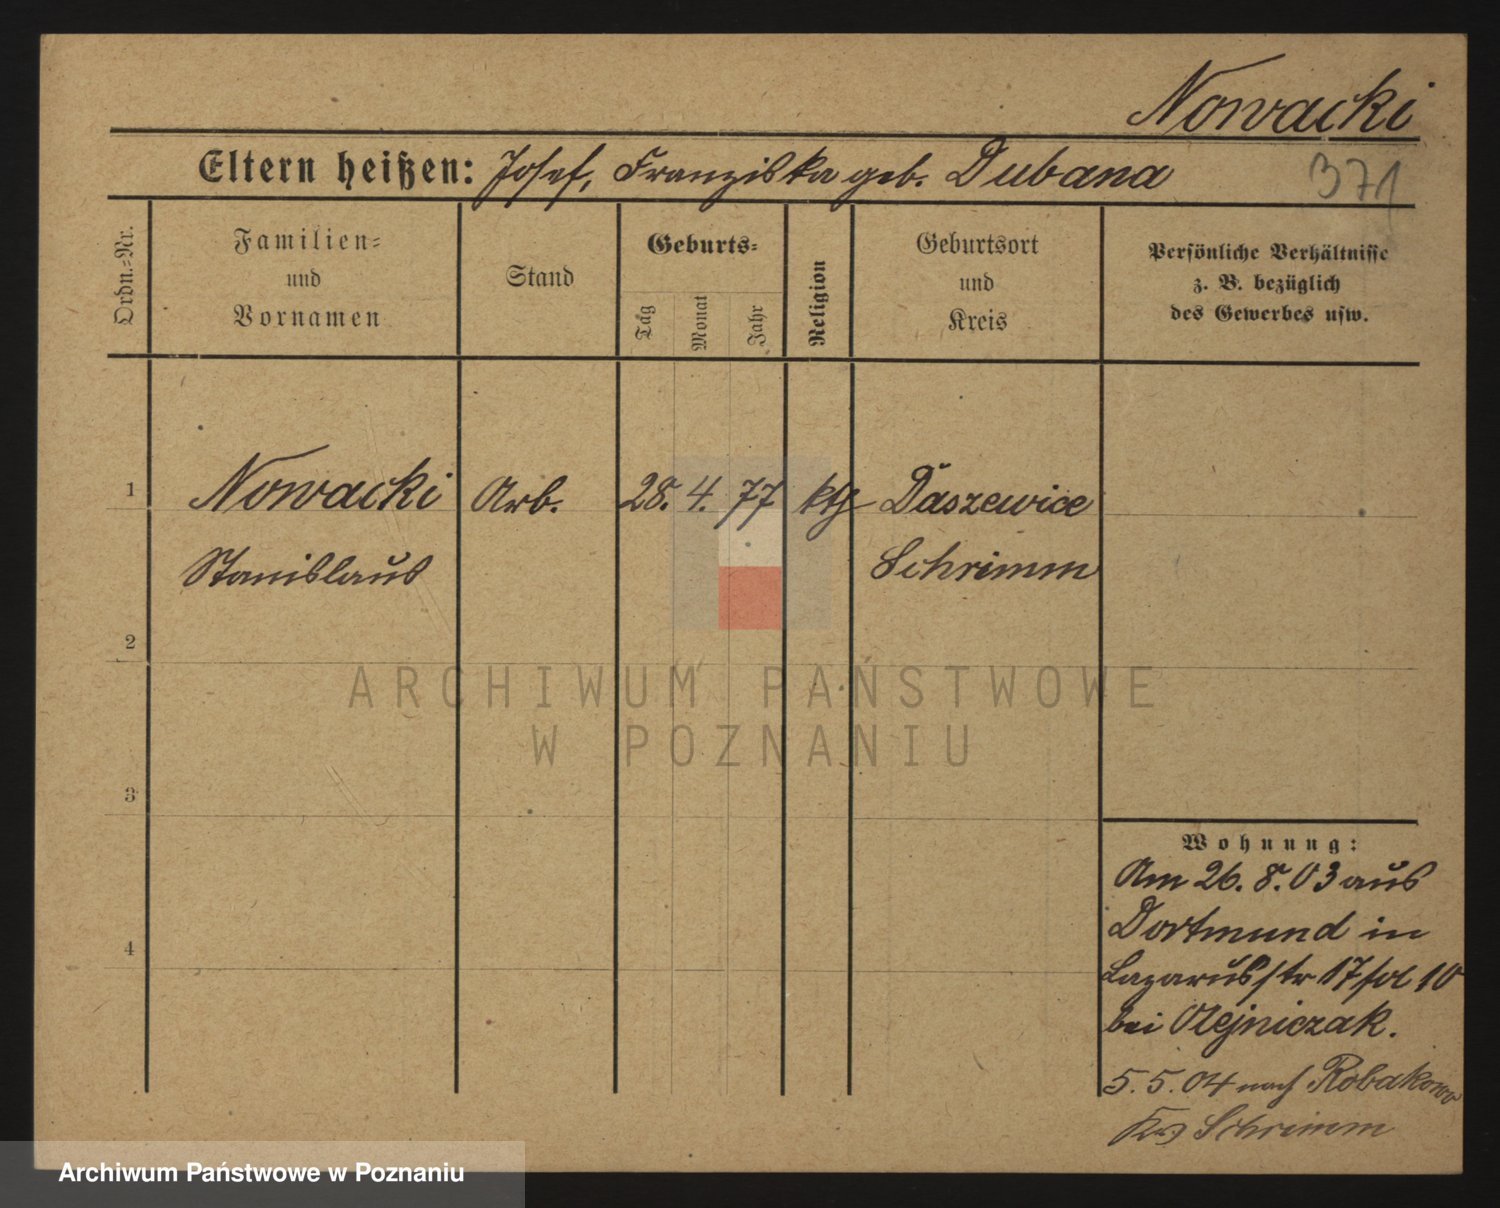 Nowacki
Eltern heißen: Josef, Franziska geb. Dubana
371
Ordn.=Nr.
Familien=
und
Vornamen
Stand
Geburts=
Tag
Monat
Jahr
Religion
Geburtsort
und
Kreis
Persönliche Verhältnisse
z. B. bezüglich
des Gewerbes usw.
1 Nowacki Arb. 28. 4. 77 ktg Daszewice
Stanislaus Schrimm
2
ARCHIWUM PAŃSTWOWE
W POZNANIU
3
Wohnung:
Am 26. 8. 03 aus
Dortmund in
4
Lazarusstr 17 10
bei Olejniczak.
5. 5. 04 nach Robakowo
Schrimm
Archiwum Państwowe w Poznaniu